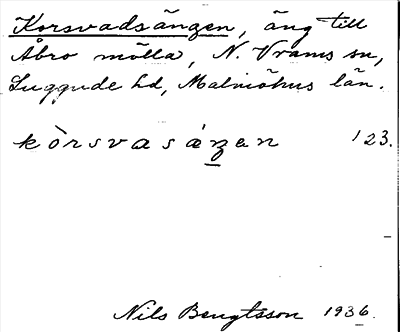 Korsvadsängen, äng till
Åbro mölla, N. Vrams sn,
Luggude hd, Malmöhus län.
kòrsvasáꞑen 123.
Nils Bengtsson 1936.